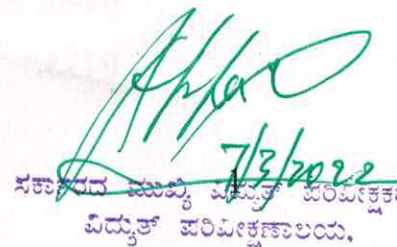 7/3/2022
ಸರ್ಕಾರದ ಮುಖ್ಯ ವಿದ್ಯುತ್ ಪರಿವೀಕ್ಷಕರು
ವಿದ್ಯುತ್ ಪರಿವೀಕ್ಷಣಾಲಯ,